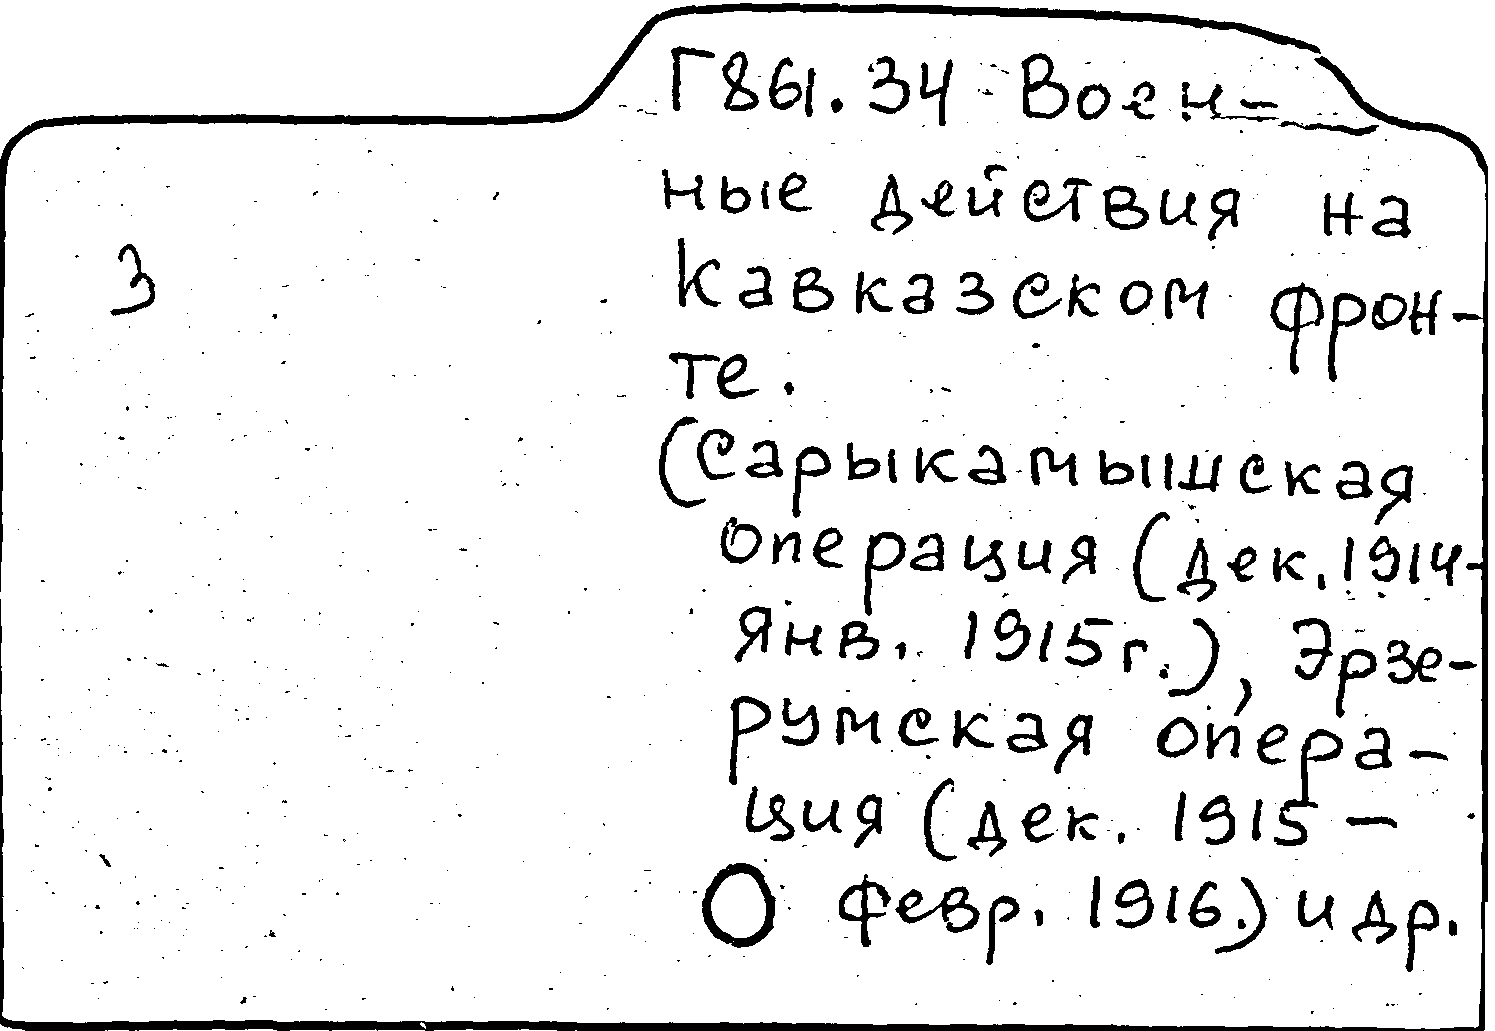 Г861.34 Воен-
ные действия на
Кавказском фрон-
те.
3
(Сарыкамышская
операция (дек. 1914-
янв. 1915 г.), Эрзе-
румская опера-
ция (дек. 1915 -
февр. 1916.) и др.